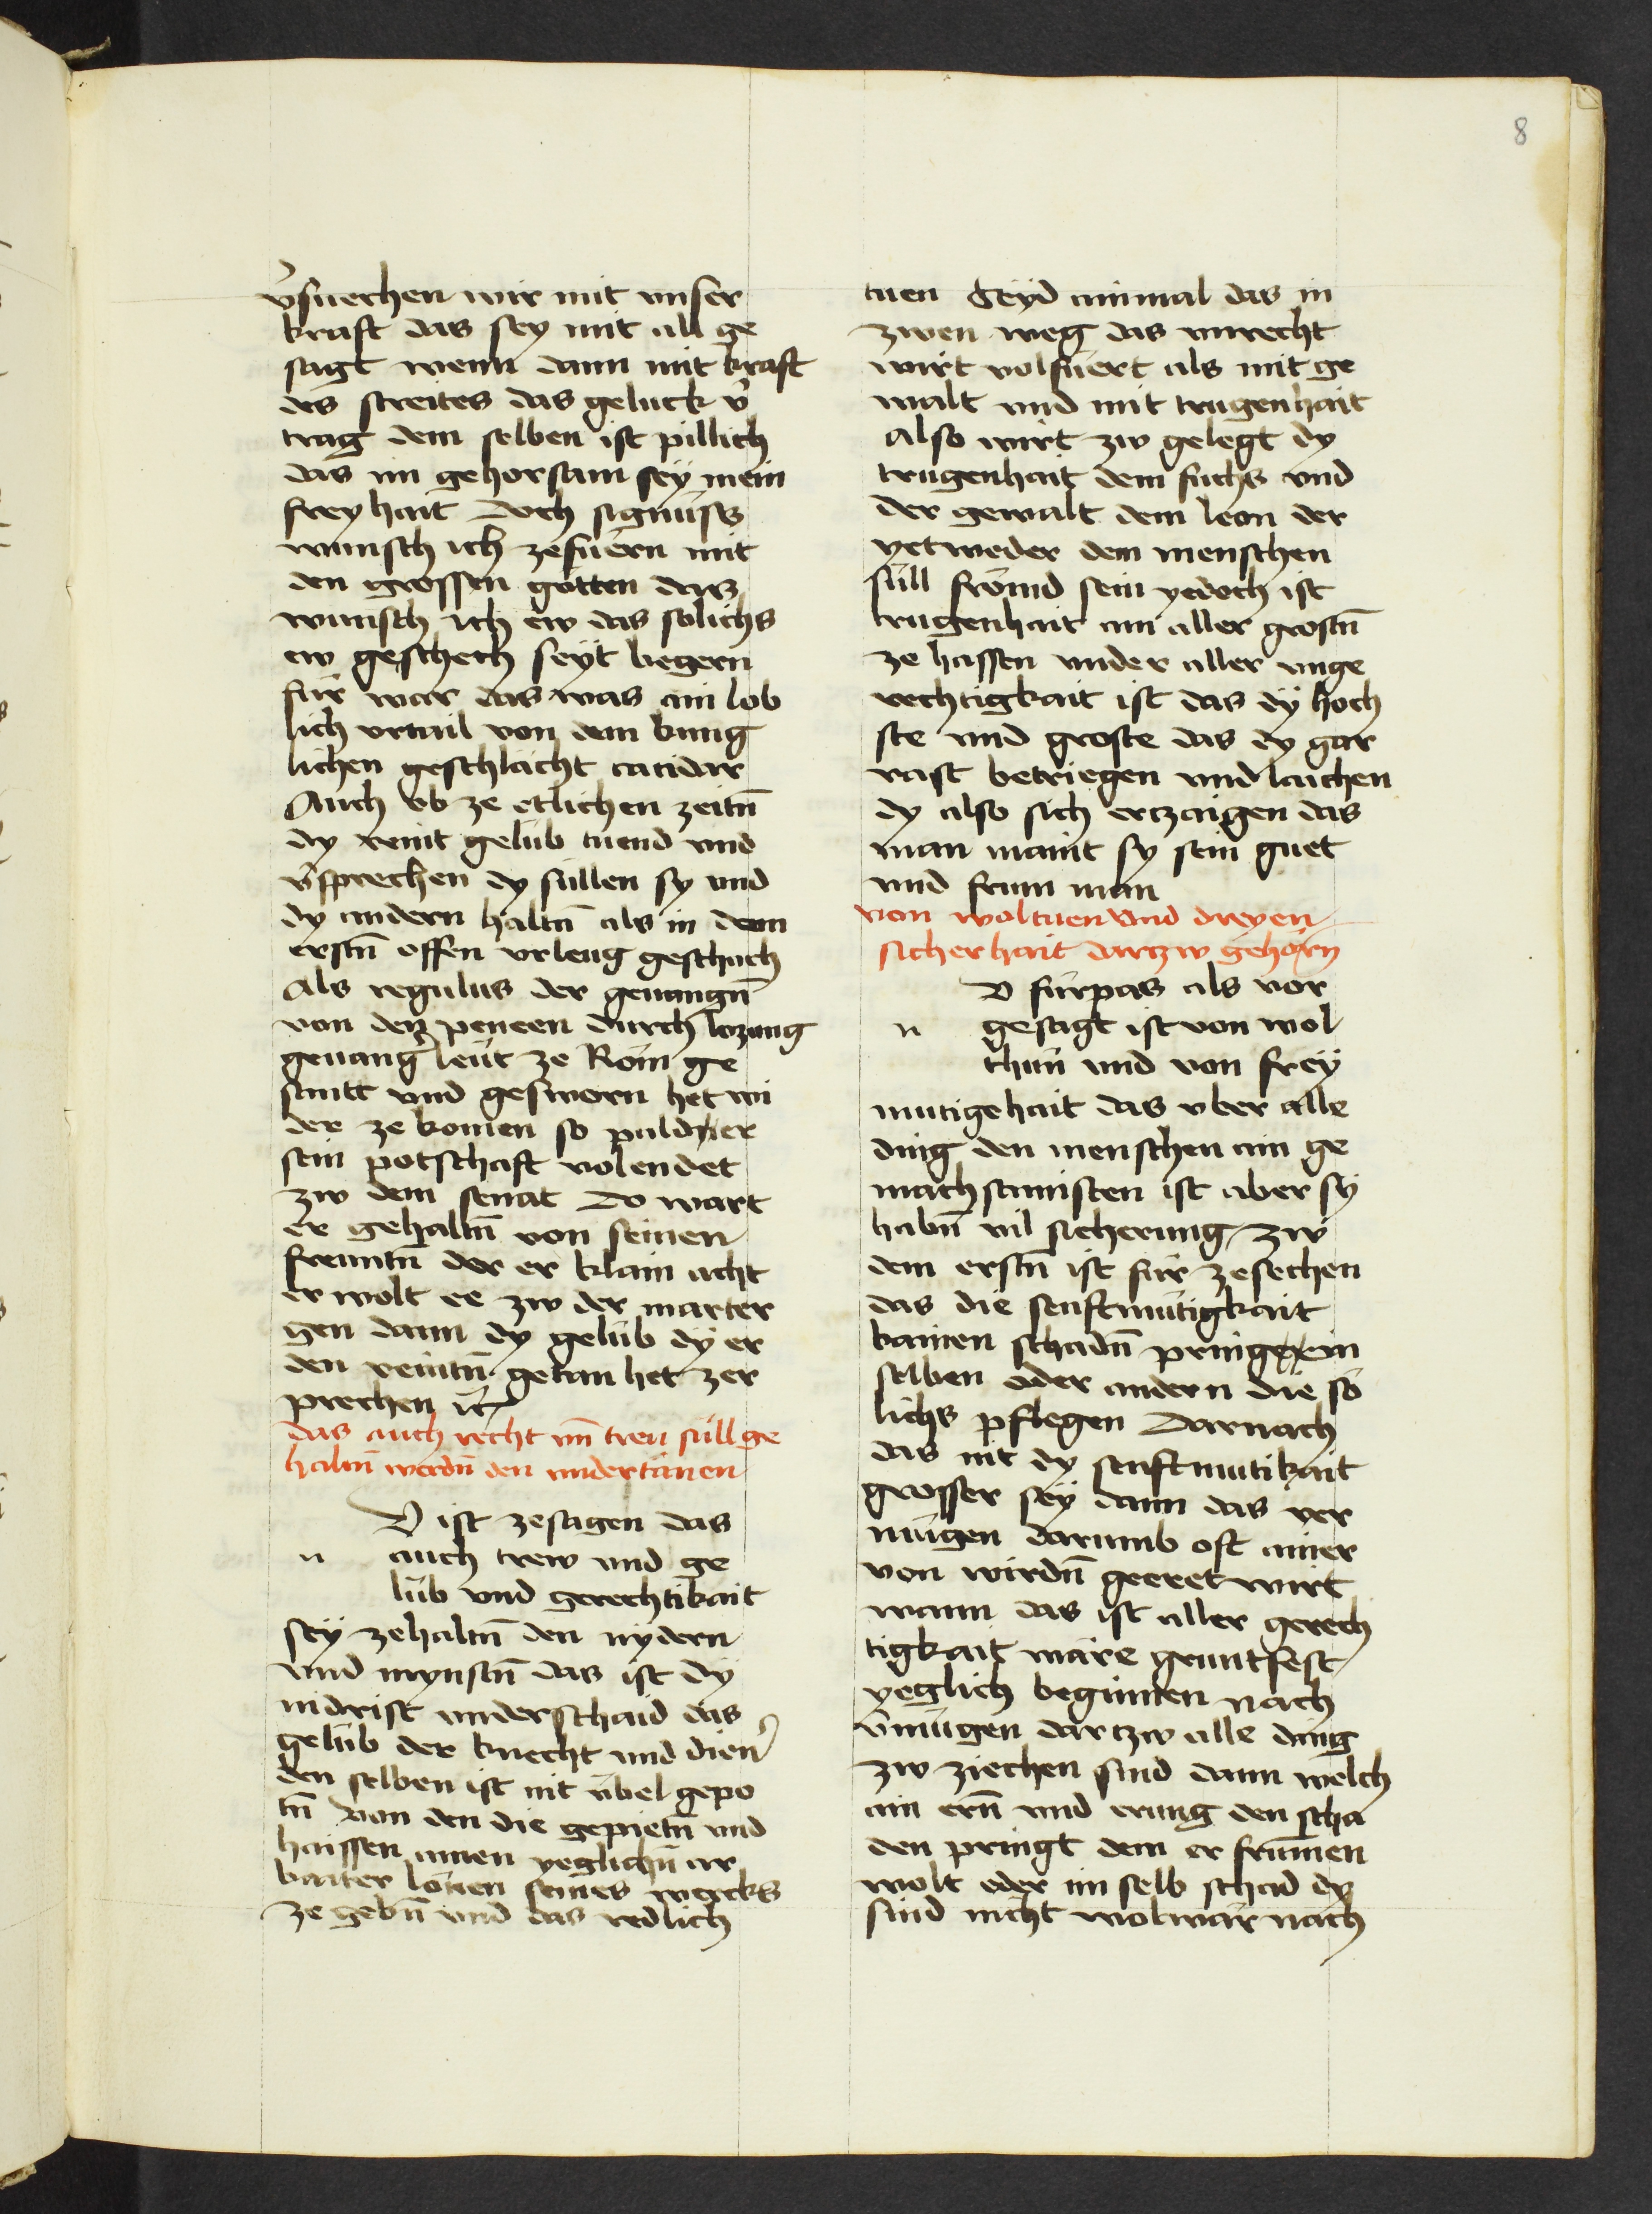 8
v̉suechen wir mit vnser
kraft das sey mit all ge
sagt wenn dann mit kraft
des streites das geluck v̉
trag dem selben ist pillich
das im gehorsam sey mein
freyhait Doch signüss
wunsch ich zefuern mit
den grossen götten das
wunsch ich ew das solichs
ew geschech seyt begern
für war das was ain lob
lich vrtail von dem kung
lichen geschlächt eacidar
Auch ob ze etlichen zeitn̄
dy veint gelub tuend vnd
v̉sprechen dy süllen sy vnd
dy andern haltn̄ als in dem
erstn̄ offen vrleug geschach
Als regulus der geuangn̄
von den peneen durch lozung
geuang̉ leut ze Rom ge
santt vnd geswern het wi
der ze komen so pald er
sein potschaft volendet
zw dem senat Do wart
er gehaltn̄ von seinen
freuntn̄ der er klain acht
er wolt ee zw der marter
gen dann dy gelub dy er
den veintn̄ getan het zer
prechen ꝛc
das auch recht vn̄ treu süll ge
haltn̄ werdn̄ den vndertänen
V ist zesagen das
n auch trew vnd ge
lüb vnd gerechtikait
sey zehaltn̄ den nydern
vnd mynstn̄ das ist dy
nidrist vnderschaid das
gelüb der knecht vnd dien̉
den selben ist nit übel gepo
tn̄ von den die gepietn̄ vnd
haissen ainen yeglichn̄ ar
baiter lönen seines wercks
ze gebn̄ vnd das redlich
tuen Seyd ainmal das in
zwen weg das vnrecht
wirt volfüert als mit ge
walt vnd mit trugenhait
Also wirt zw gelegt dy
trugenhait dem fuchs vnd
der gewalt dem leon der
yetweder dem menschen
süll frömd sein yedoch ist
trugenhait am aller grostn̄
ze hassen vnder aller vnge
rechtigkait ist das dy hoch
ste vnd groste das dy gar
vast betriegen vnd laichen
dy also sich ertzaigen das
man maint sy sein guet
vnd frum man
von woltuen vnd dreyen
sicherhait dartzw gehörn
V fürpas als vor
n gesagt ist von wol
thun vnd von frey
mutigehait das vber alle
ding den menschen ain ge
machsamisten ist aber sy
habn̄ vil sicherung zw
dem erstn̄ ist für zesechen
das die senftmütigkait
kainen schadn̄ pring ein
selben oder andern die so
lichs pflegen Darnach
das nit dy senftmutikait
grosser sey dann das ver
mügen darumb oft ainer
von wirdn̄ geeret wirt
wann das ist aller gerech
tigkait märe gruntfest
yeglich beginnen nach
v̉mügen dartzw alle ding
zw ziechen sind dann welch
ain ern̄ vnd erung den scha
den pringt dem er frumen
wolt oder im selb schad dy
sind nicht wolwär nach